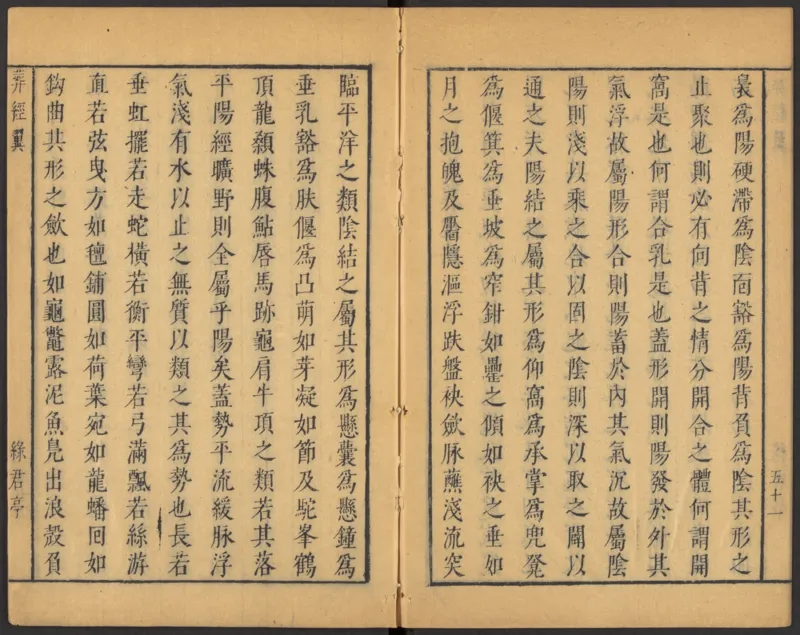 裊為陽硬滯為陰面豁為陽背負為陰其形之
止聚也則必有向背之情分開合之體何謂開
窩是也何謂合乳是也蓋形開則陽發於外其
氣浮故屬陽形合則陽蓄於內其氣沉故屬陰
陽則淺以乘之合以固之陰則深以取之闢以
通之夫陽結之屬其形為仰窩為承掌為兜凳
為偃箕為垂坡為窄鉗如罍之傾如袂之垂如
月之抱魄及靨隱漚浮趺盤袂斂脉蘸淺流突
五十一
臨平洋之類陰結之屬其形為懸囊為懸鐘為
垂乳豁為肤偃為凸萌如芽凝如節及駝峯鶴
頂龍顙蛛腹鮎唇馬跡龜肩牛項之類若其落
平陽經曠野則全屬乎陽矣蓋勢平流緩脉浮
氣淺有水以止之無質以類之其為勢也長若
垂虹擺若走蛇橫若衡平彎若弓滿飄若絲游
直若弦曳方如氊鋪圓如荷葉宛如龍蟠回如
鈎曲其形之斂也如龜鼈露泥魚鳧出浪殼負
葬經翼
綠君亭